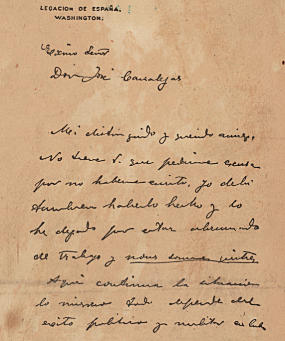 LEGACION DE ESPAÑA.
WASHINGTON.
Excmo Señor
Don José Canalejas
Mi distinguido y querido amigo,
No tiene V. que pedirme excusa
por no haberme escrito, yo debí
también haberlo hecho y lo
he dejado por estar abrumado
de trabajo y nous sommes quittes.
Aquí continua la situacion
lo mismo todo depende del
exito politico y militar en Cuba